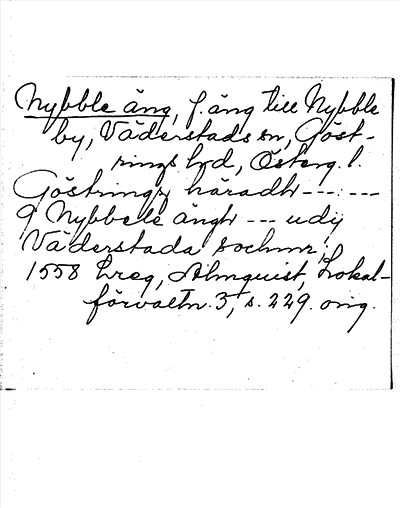 Nybble äng, f. äng till Nybble
by, Väderstads sn, Göst-
rings hd, Österg. l.
Göstringz häradh --- : ---
9 Nybbele ängh --- udij
Väderstada sochnn;
1558 Lreg, Almquist, Lokal-
förvaltn. 3, s. 229. orig.